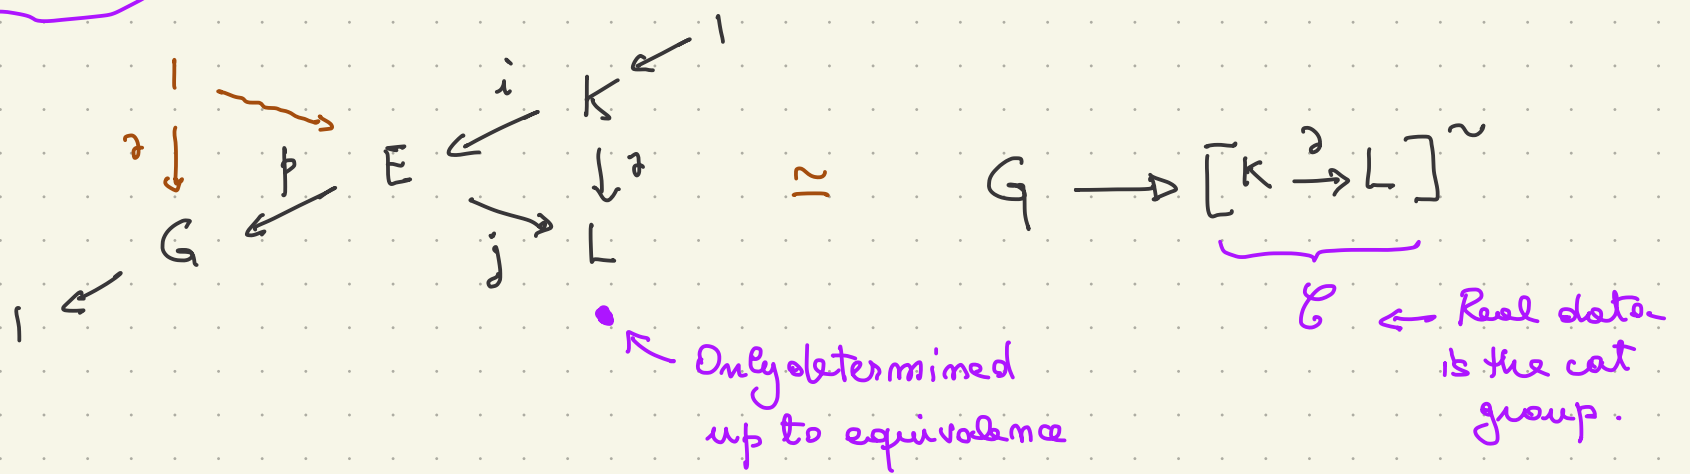 1
i K
1
∂ p E ∂ ≃ G → [K ∂→ L]~
G j L
1
C ← Real data
is the cat
group.
Only determined
up to equivalence